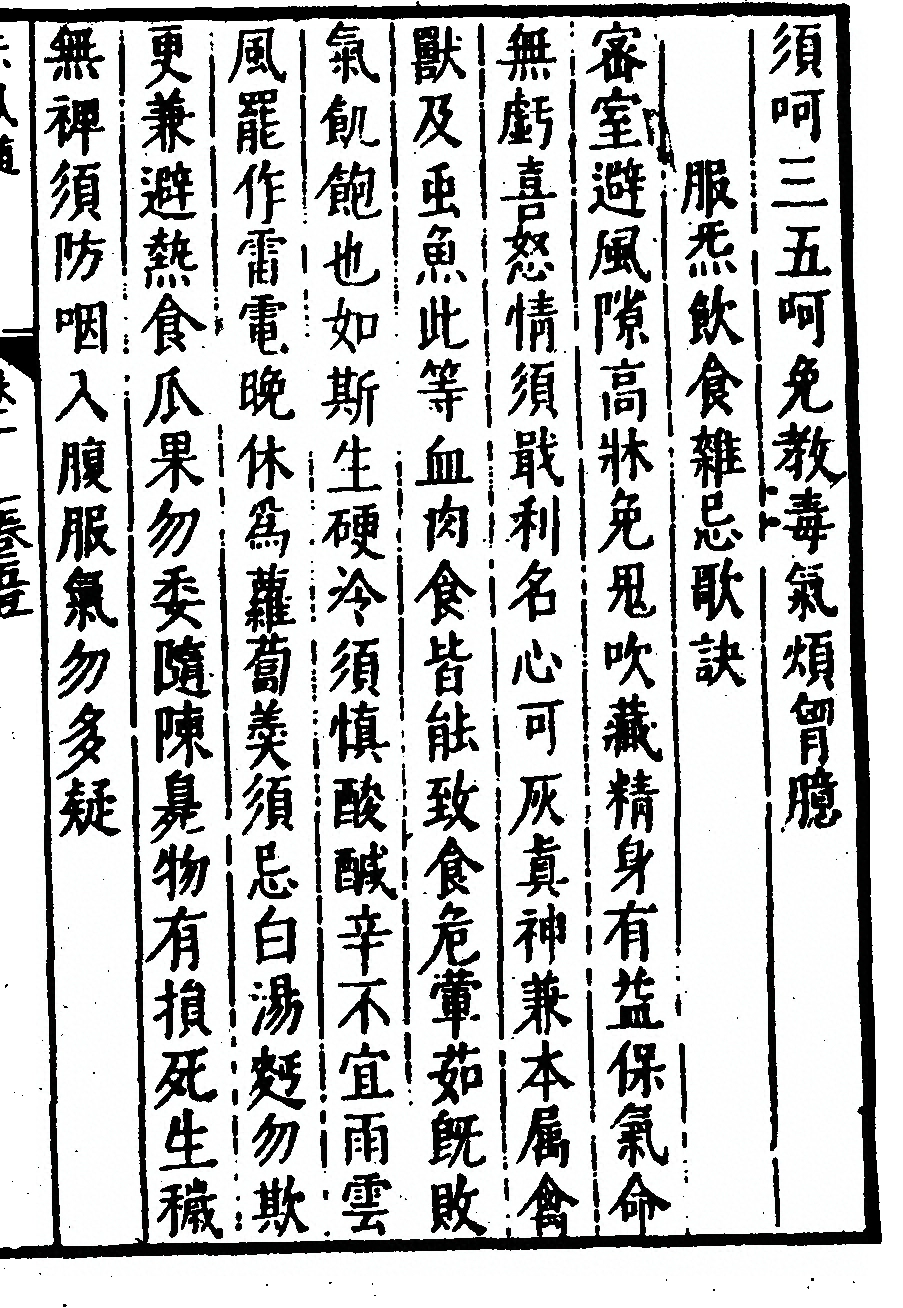 須呵三五呵免教毒氣煩胷臆
服炁飲食雜忌歌訣
密室避風隙高牀免鬼吹藏精身有益保氣命
無虧喜怒情須戢利名心可灰真神兼本属禽
獸及虫魚此等血肉食皆能致食危葷茹既敗
氣飢飽也如斯生硬冷須慎酸醎辛不宜雨雲
風罷作雷電晚休為蘿蔔羮須忌白湯麪勿欺
更兼避熱食瓜果勿委隨陳臭物有損死生穢
無禆須防咽入腹服氣勿多疑